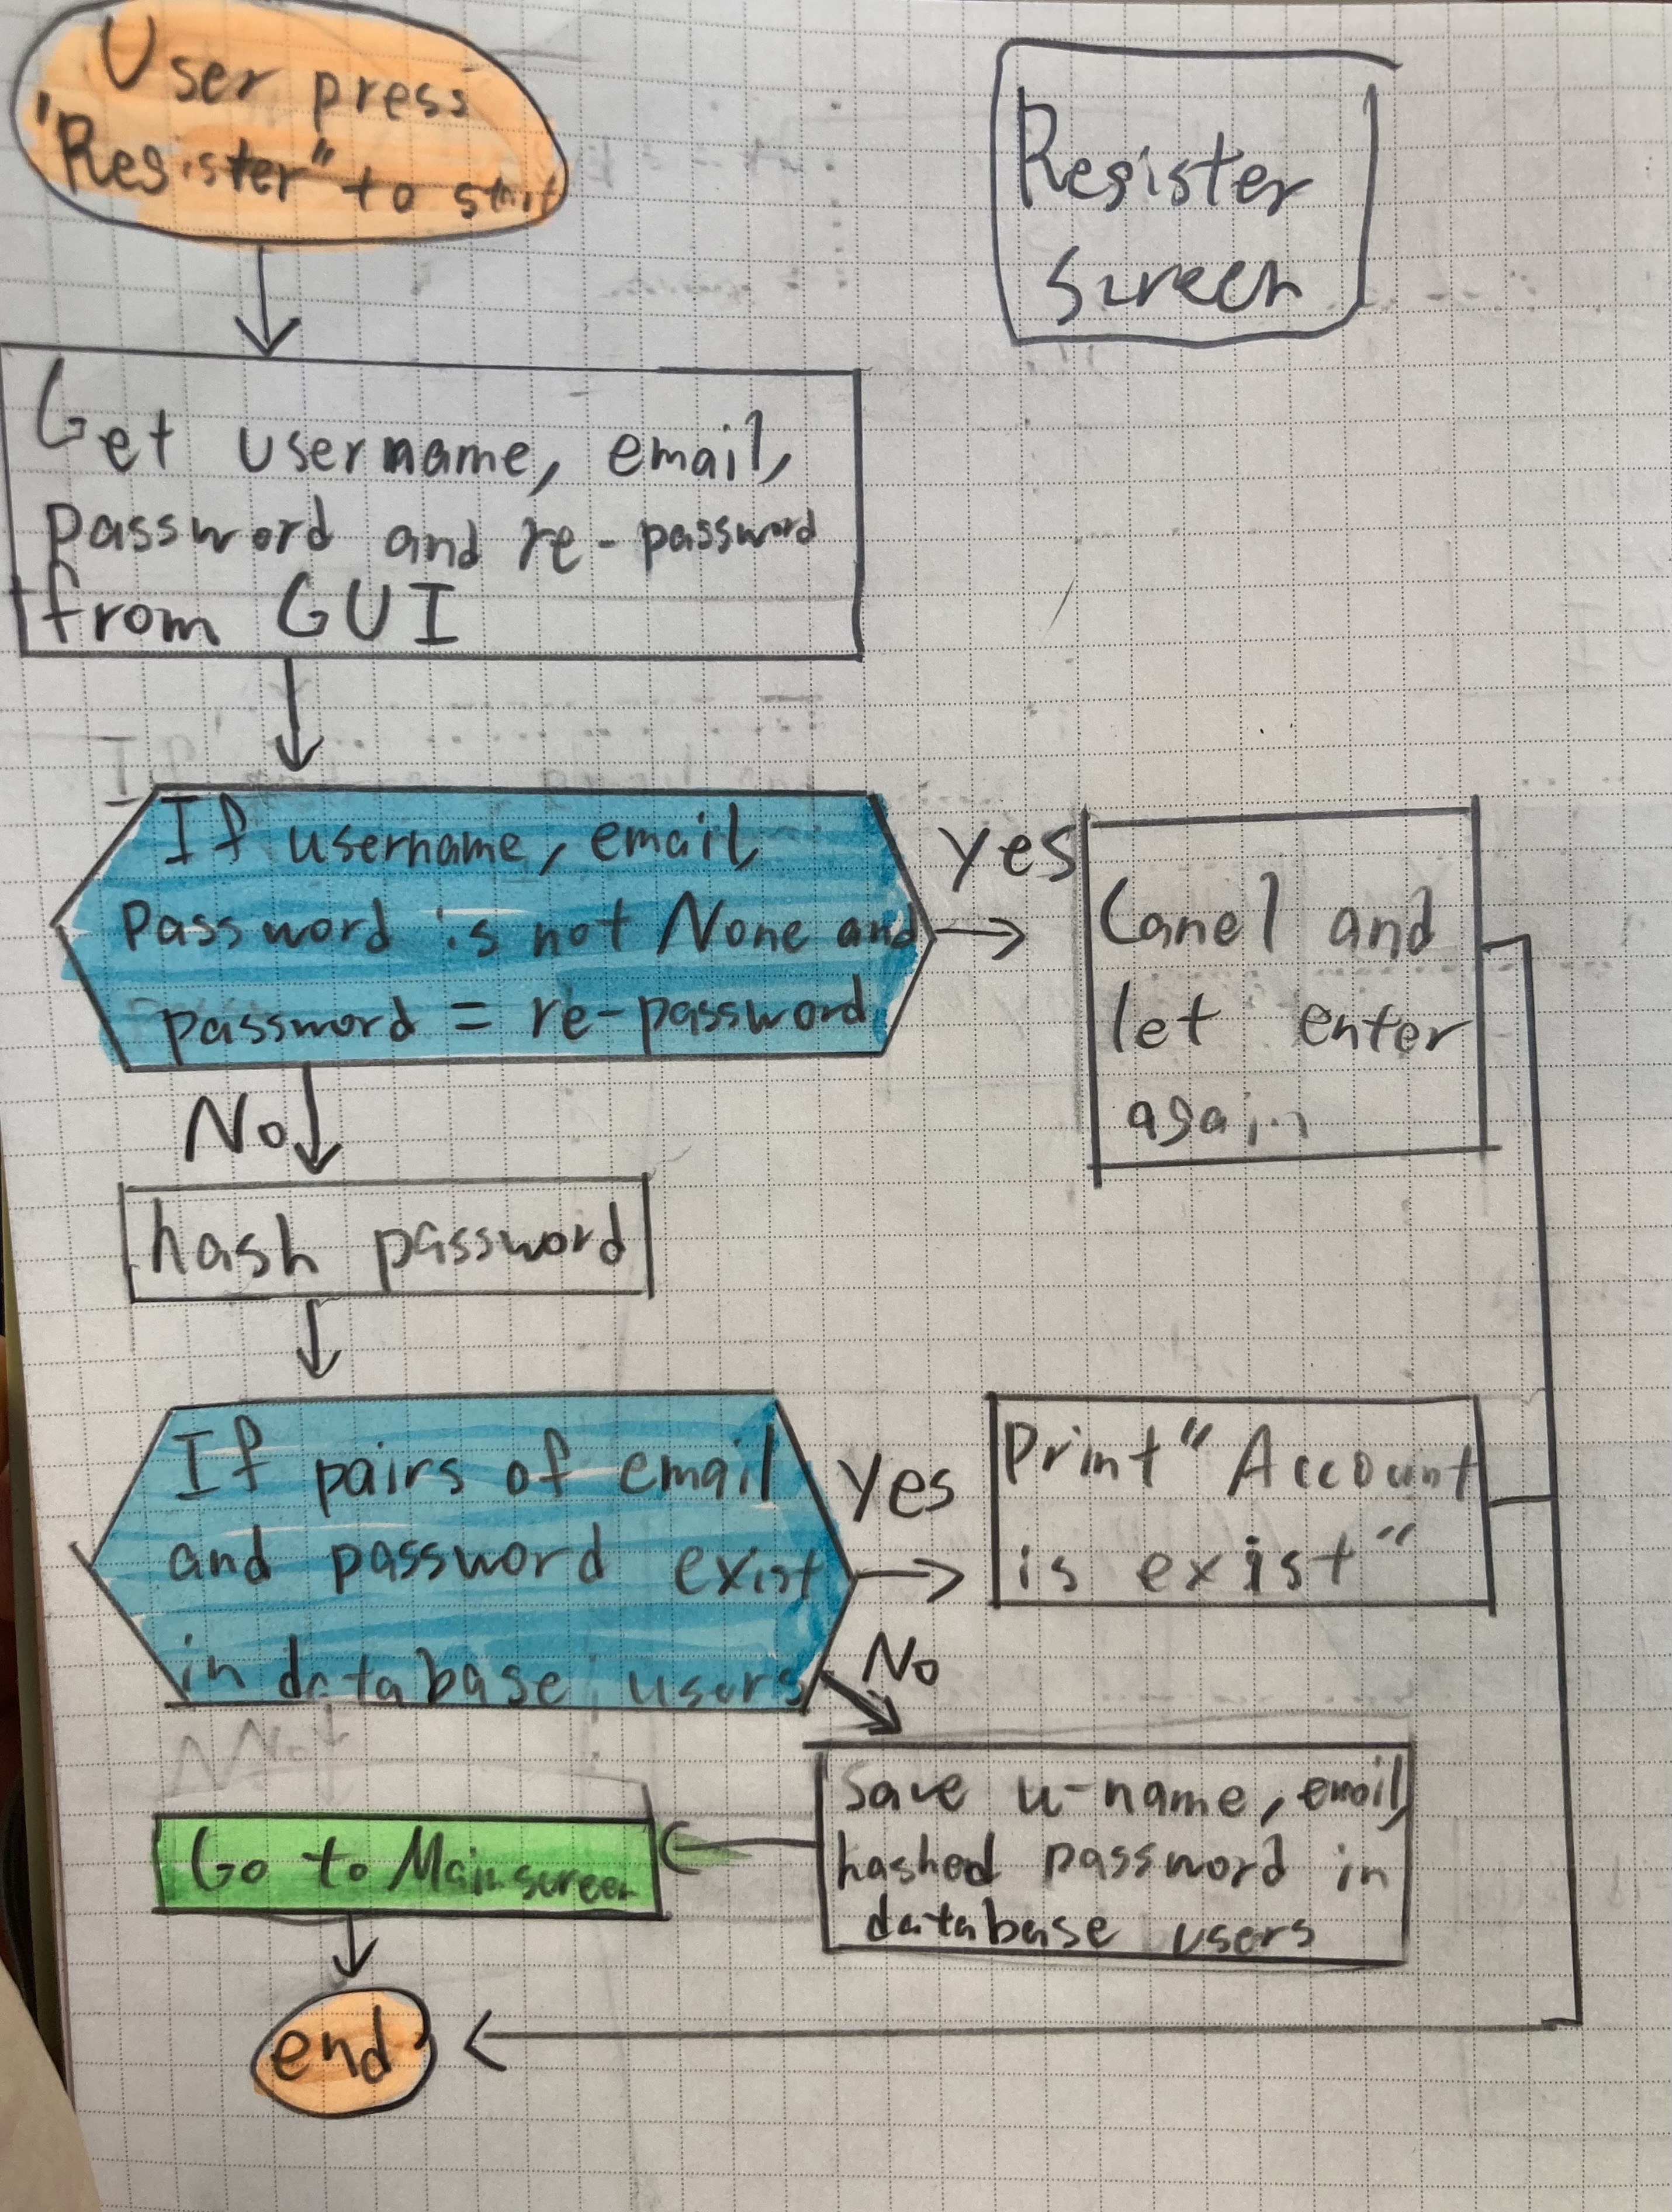 User press
"Register" to start
Register
screen
Get username, email,
password and re-password
from GUI
If username, email,
Password is not None and
password = re-password
yes
Canel and
let enter
again
No
hash password
If pairs of email
and password exist
in database users
yes
Print "Account
is exist"
No
Save u-name, email,
hashed password in
database users
Go to Main screen
end